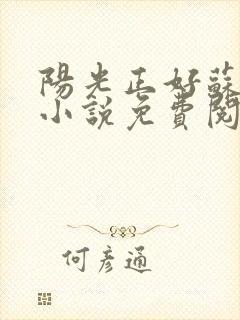 陽光正好蘇
小說免費閱
何彥通